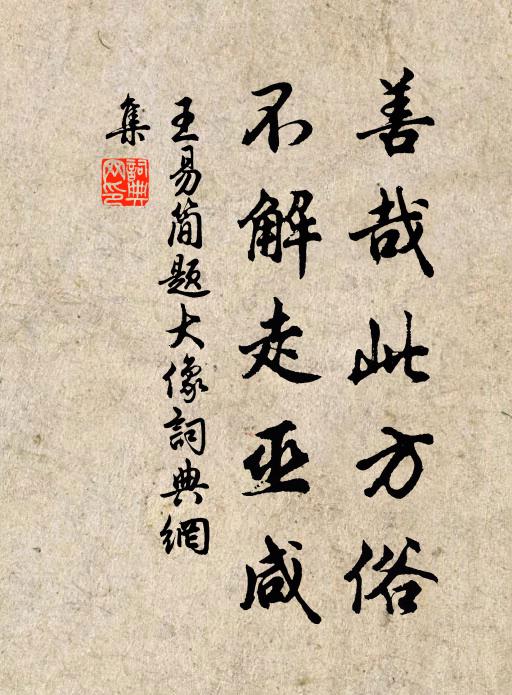 善哉此方俗
不解走巫咸
王易简題大像詞典網
集
詞典网印